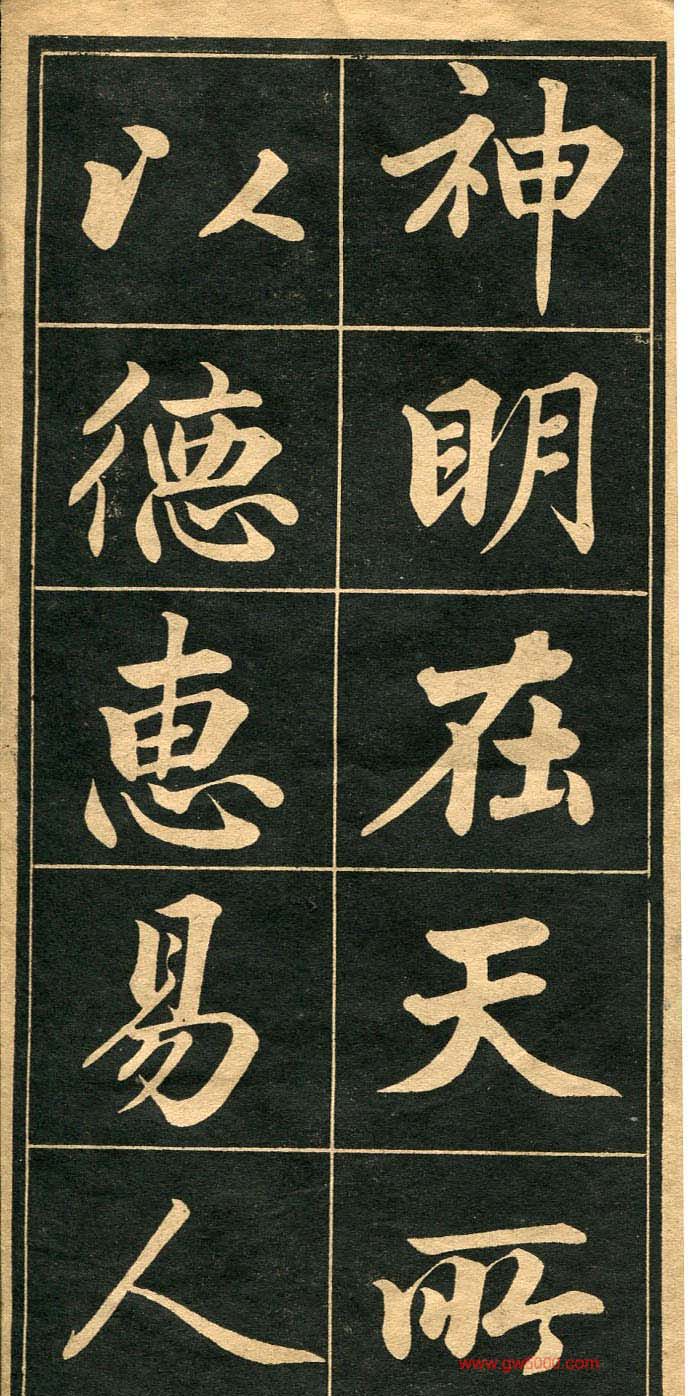 神明在天所
以德惠易人
www.gw8000.com